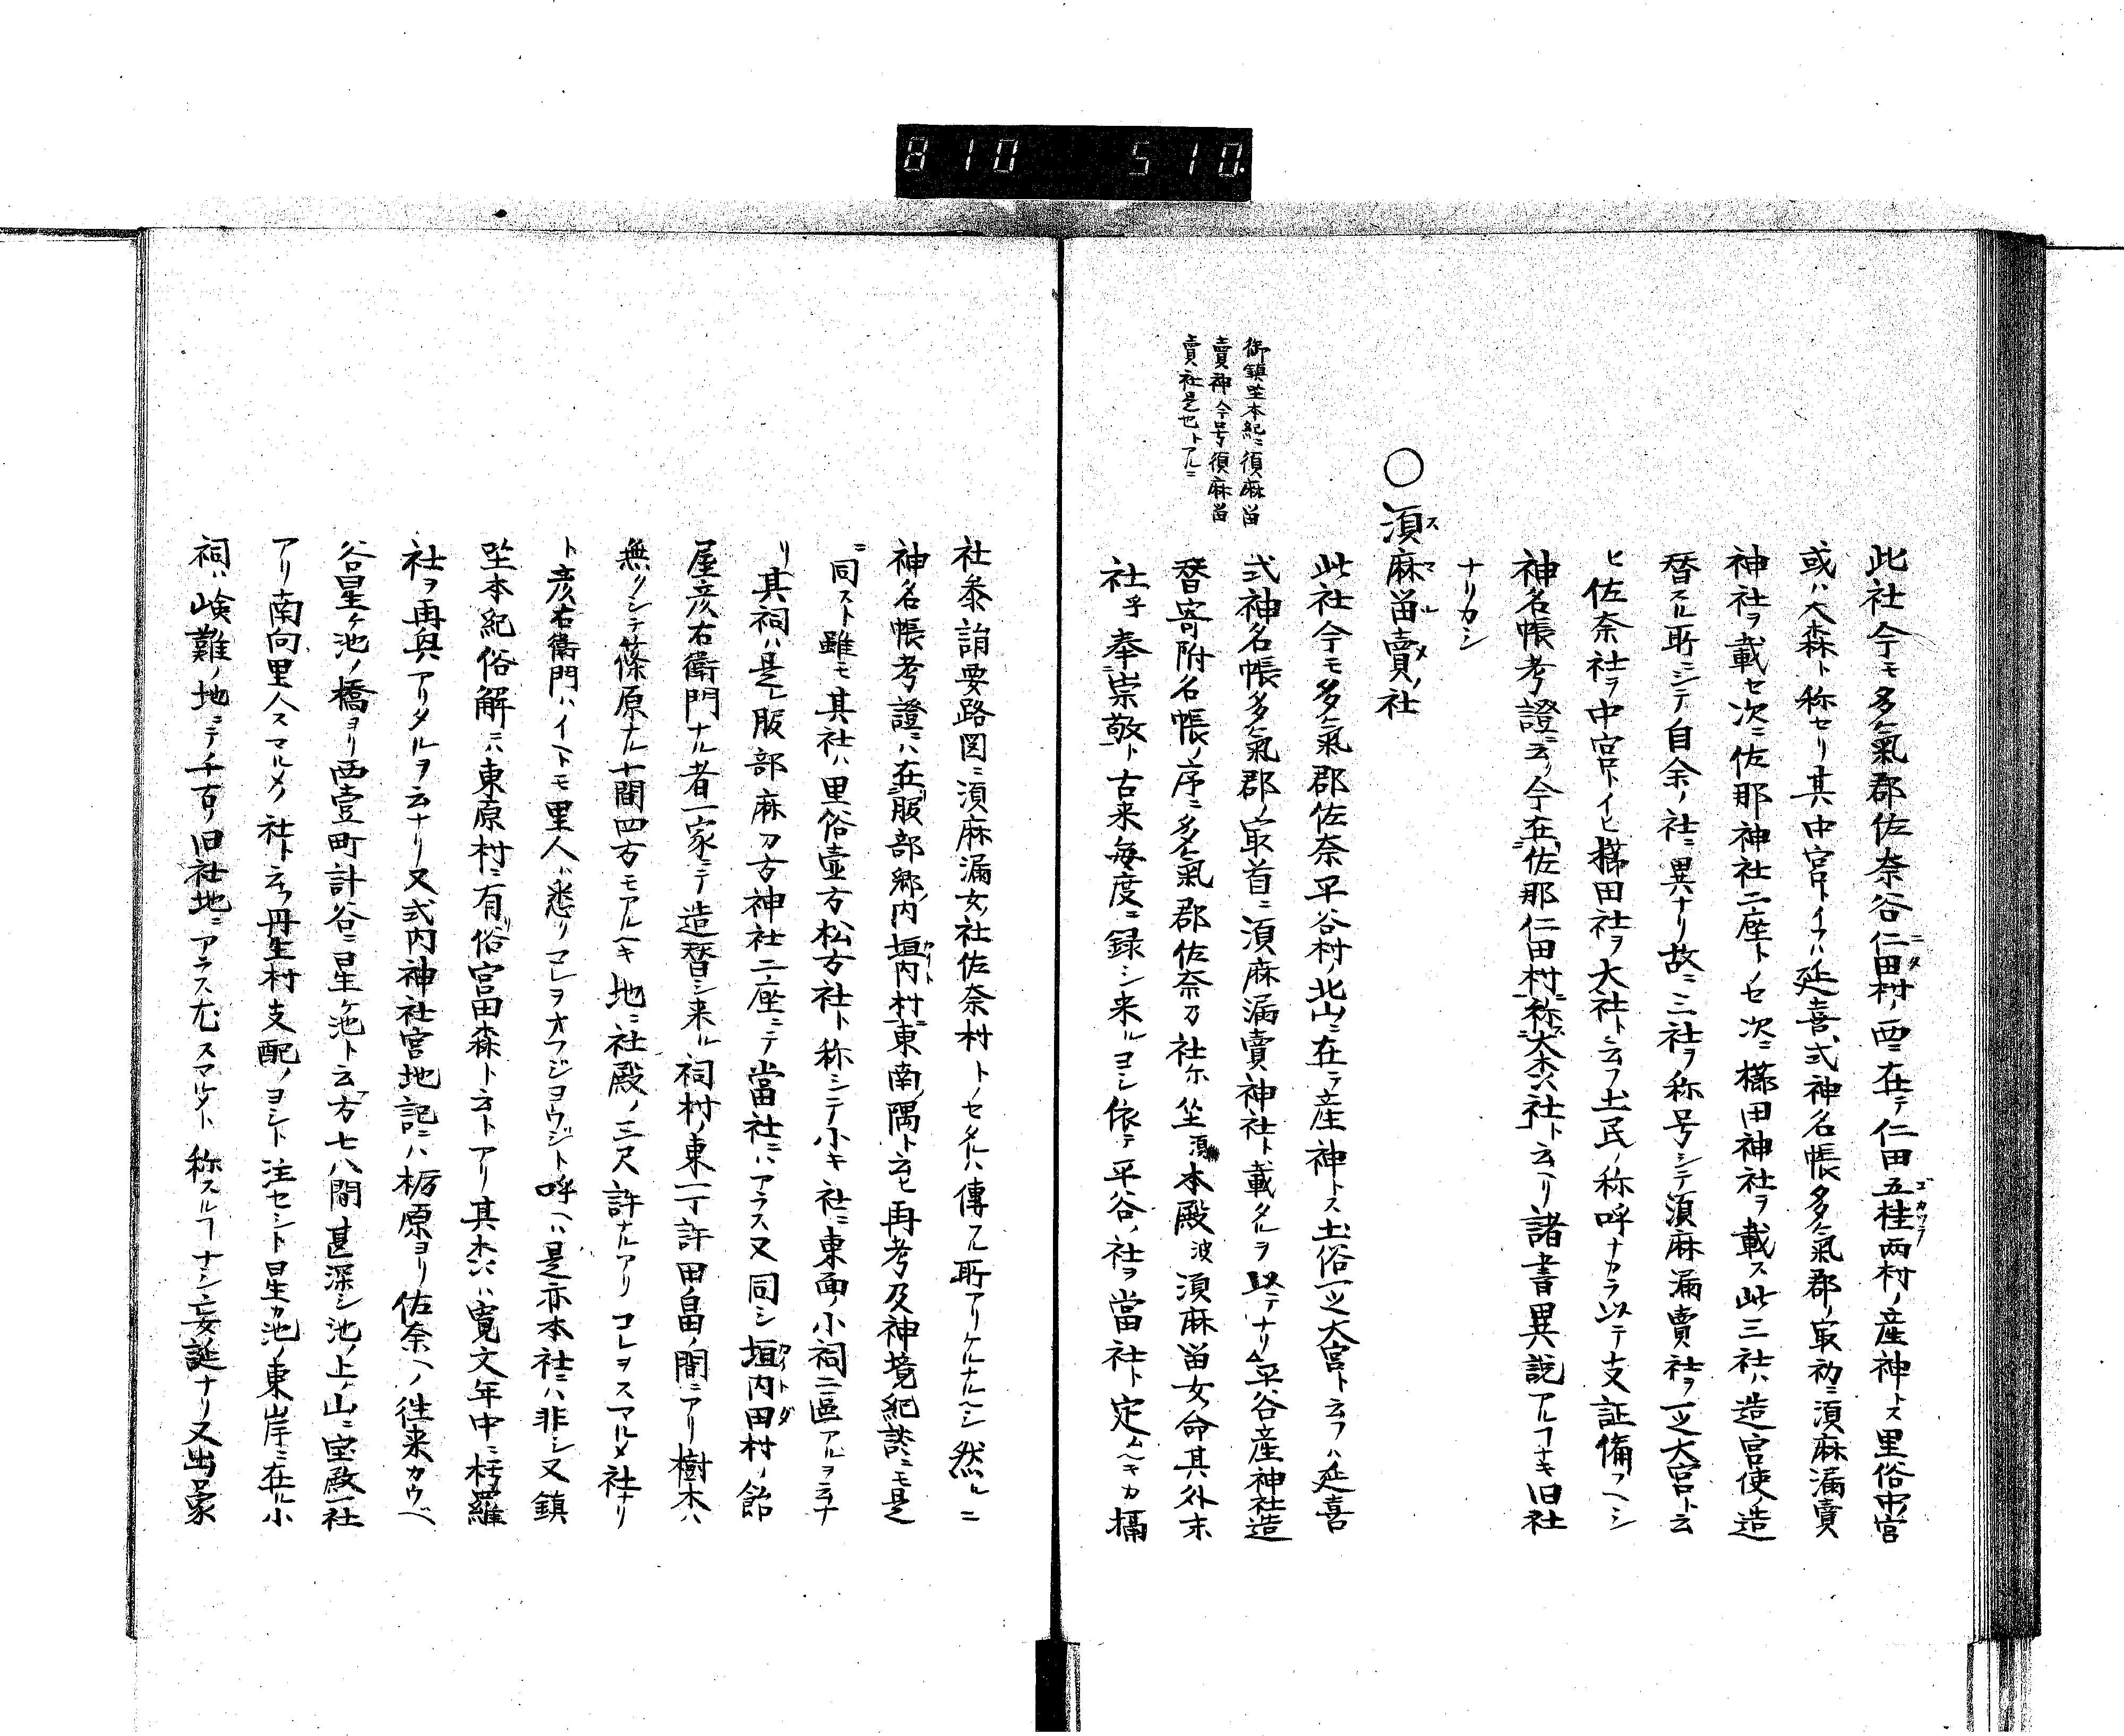 810 510.
此社今モ多氣郡佐奈谷仁田村ノ西ニ在テ仁田五桂両村ノ産神トス里俗中宮
或ハ大森ト称セリ其中宮トイフハ延喜式神名帳多氣郡ノ最初ニ須麻漏賣
神社ヲ載セ次ニ佐那神社二座トノセ次ニ櫛田神社ヲ載ス此三社ハ造宮使ノ造
替スル所ニシテ自余ノ社ニ異ナリ故ニ三社ヲ称号シテ須麻漏賣社ヲ一之大宮ト云
ヒ佐奈社ヲ中宮トイヒ櫛田社ヲ大社ト云フ土民ノ称呼ナカラ以テ支証備フヘシ
神名帳考證ニ云ク今在佐那仁田村称大森社ト云ヘリ諸書異説アルフナキ旧社
ナリカシ
○須麻留賣ノ社
此社今モ多氣郡佐奈平谷村ノ北山ニ在テ産神トス土俗一之大宮ト云フハ延喜
式神名帳多氣郡ノ最首ニ須麻漏賣神社ト載タルヲ以テナリ平谷産神社造
替寄附名帳ノ序ニ多氣郡佐奈乃社尓坐須本殿波須麻留女命其外末
社乎奉崇敬ト古来毎度ニ録シ来ルヨシ依テ平谷ノ社ヲ當社ト定ムヘキカ摂
御鎮坐本紀ニ須麻留
賣神今号須麻留
賣社是也トアルニ
社参詣要路図ニ須麻漏女社佐奈村トノセタルハ傳フル所アリケルナルヘシ然ルニ
神名帳考證ニハ在服部郷内垣内村東南隅ト云ヒ再考及神境紀談ニモ是
ニ同スト雖モ其社ハ里俗壺方松方社ト称シテ小キ社ニ東面ノ小祠二區アルヲ云ナ
リ其祠ハ是レ服部麻刀方神社二座ニテ當社ニハアラス又同シ垣内田村ノ飴
屋彦右衛門ナル者一家ニテ造替シ来ル祠村ノ東一丁許田畠ノ間ニアリ樹木ハ
無クシテ篠原ナル十間四方モアルヘキ地ニ社殿ノ三尺許ナルアリコレヲスマルメ社ナリ
ト彦右衛門ハイヘトモ里人ハ悉クコレヲオフジヨウジト呼ヘハ是亦本社ニハ非シ又鎮
坐本紀俗解ニハ東原村ニ有俗宮田森ト云トアリ其森ハ寛文年中ニ柱羅
社ヲ再興アリタルヲ云ナリ又式内神社宮地記ニハ栃原ヨリ佐奈ヘノ往来カウベ
谷星ケ池ノ橋ヨリ西壹町計谷ニ星ケ池ト云方七八間甚深シ池ノ上ノ山ニ宝殿一社
アリ南向里人スマルメノ社ト云フ丹生村支配ノヨシト注セシト星カ池ノ東岸ニ在ル小
祠ハ嶮難ノ地ニテ千古ノ旧社地ニアラス尤スマルメト称スルフナシ妄誕ナリ又出口家